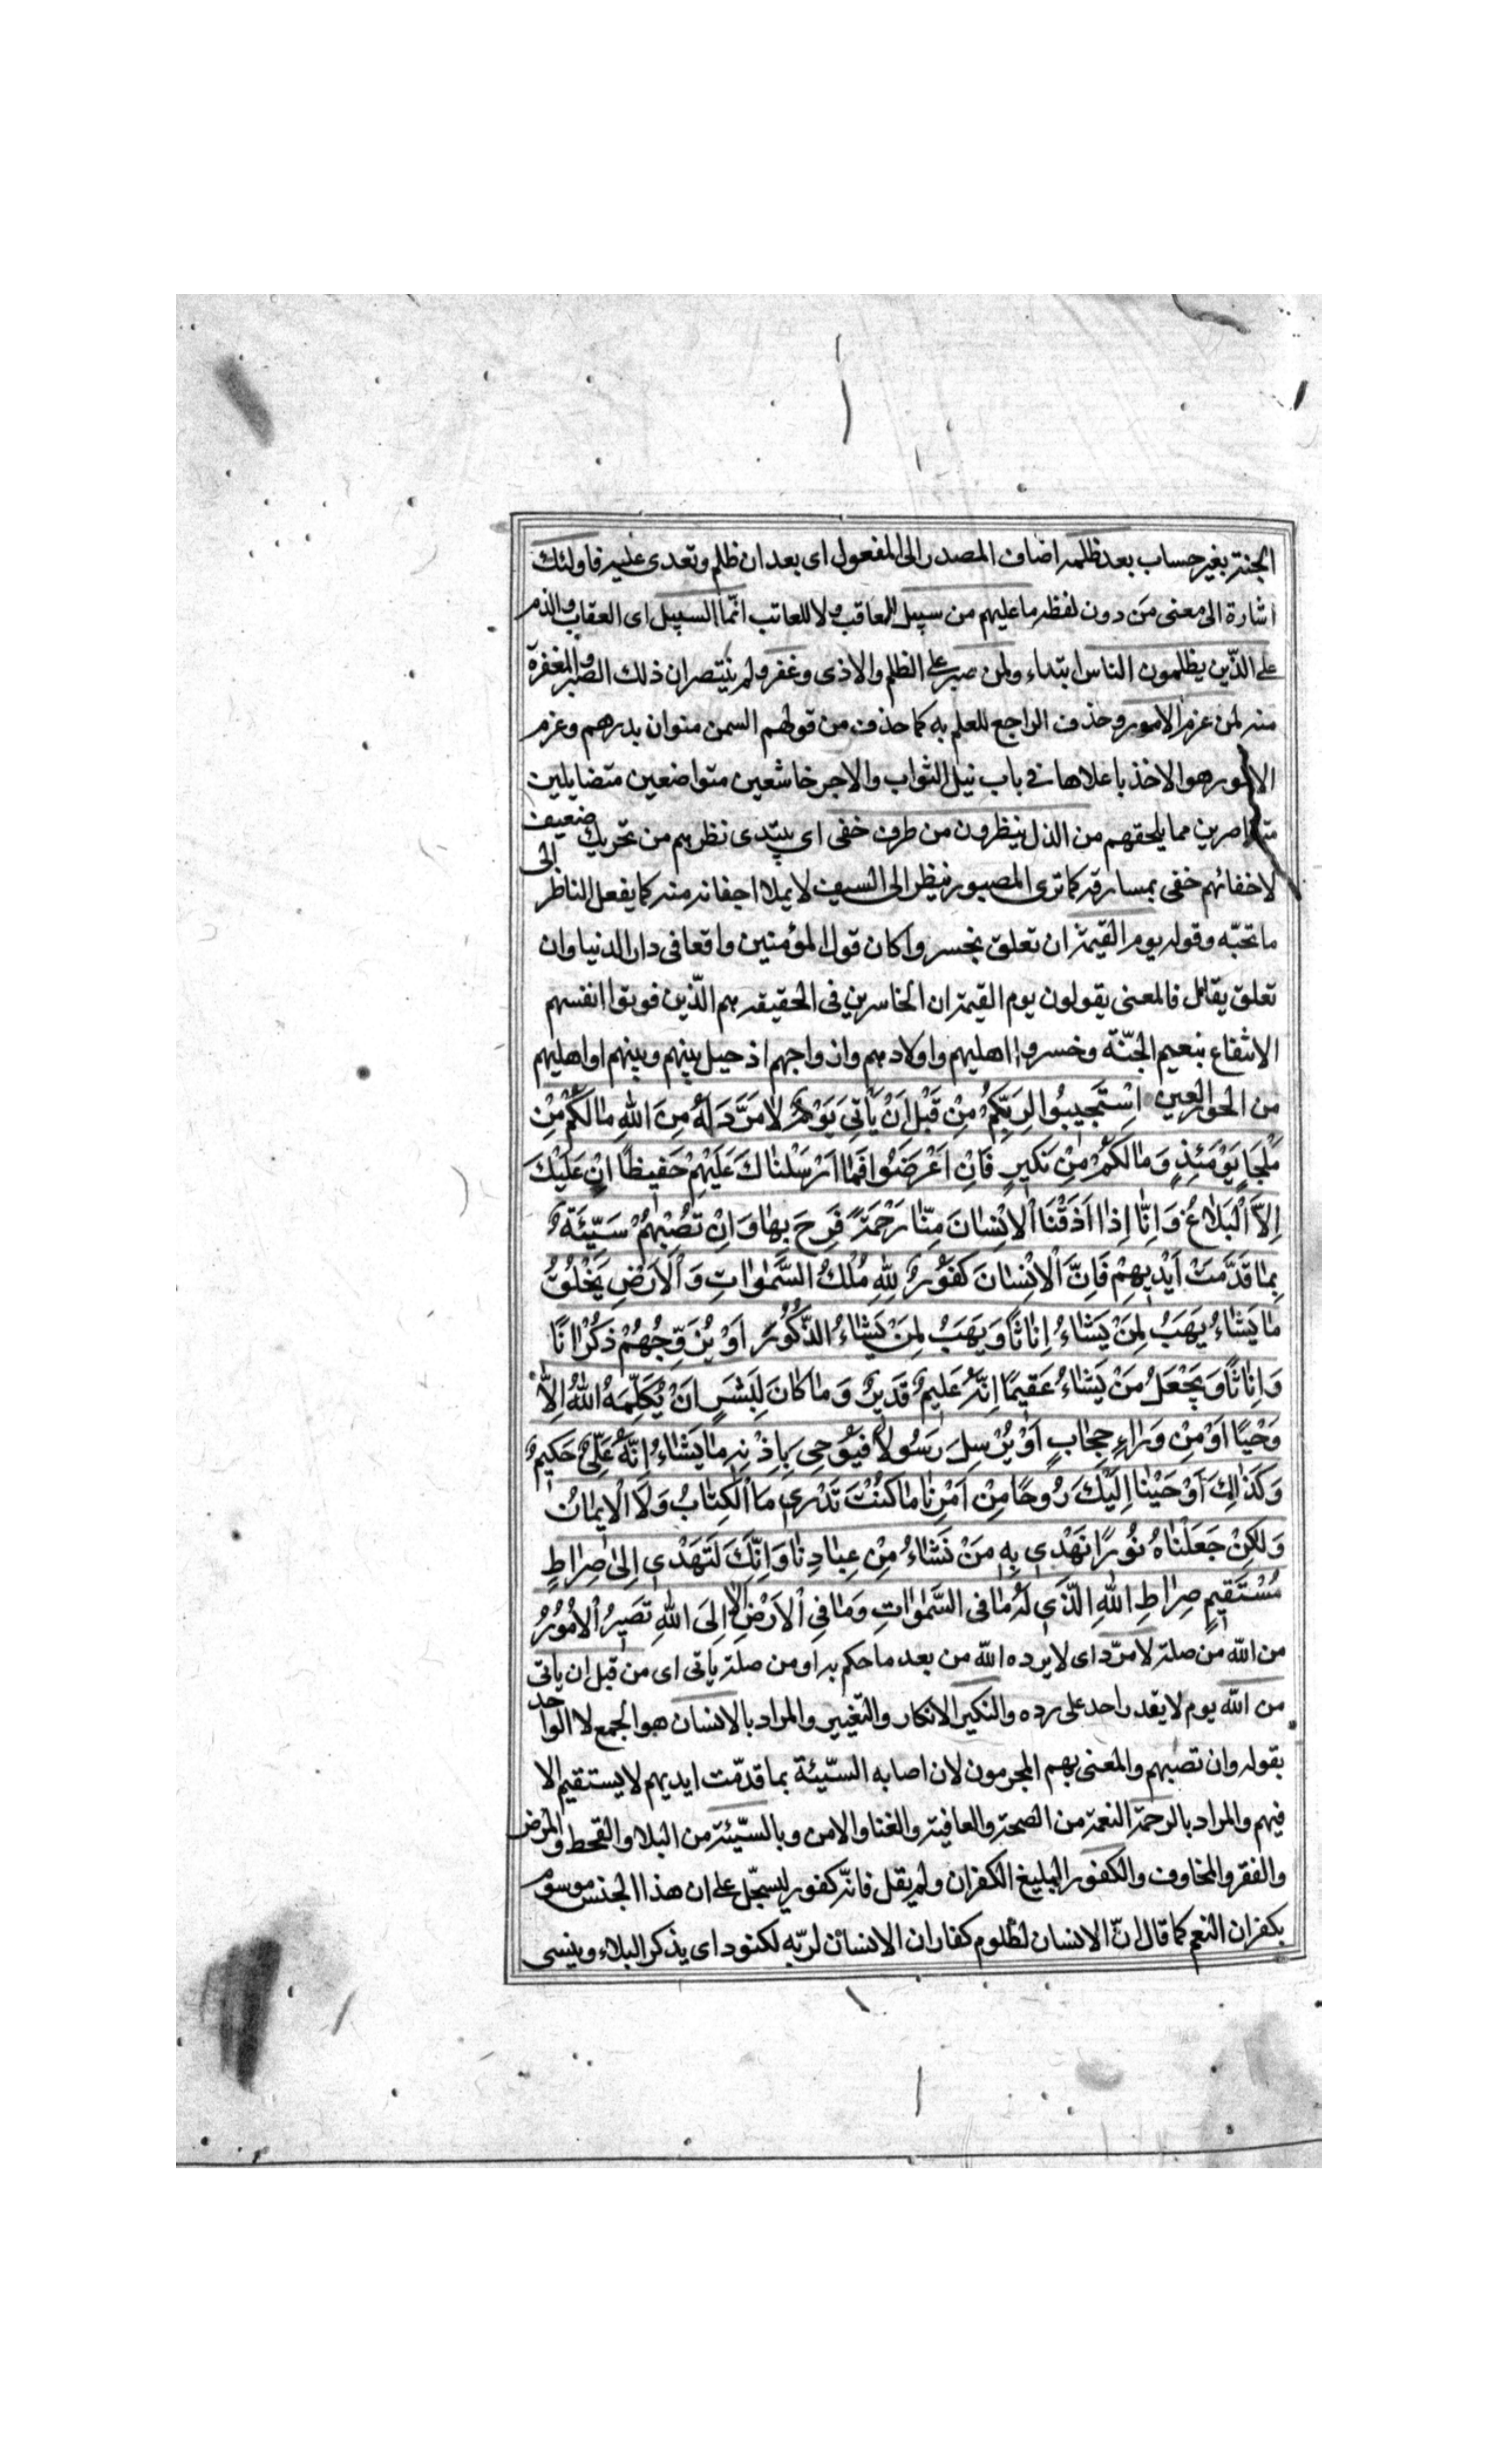 الجنة بغير حساب بعد ظلمه اضاف المصدر الى المفعول اى بعد ان ظلم وتعدى عليه فاولئك
اشارة الى معنى مَن دون لفظه ما عليهم من سبيل للمعاقب ولا للعاتب انّما السبيل اى العقاب والذم
على الّذين يظلمون الناس ابتداء ولمن صبر على الظلم والاذى وغفر ولم ينتصر ان ذلك الصبر والمغفرة
منه لمن عزم الامور وحذف الراجع للعلم به كما حذف من قولهم السمن منوان بدرهم وعزم
الامور هو الاخذ باعلاها فى باب نيل الثواب والاجر خاشعين متواضعين متضايلين
متقاصرين مما يلحقهم من الذل ينظرون من طرف خفى اى يبتدى نظرهم من تحريك ضعيف
لاخفائهم خفى بمسارقه كما ترى المصبور ينظر الى السيف لا يملا اجفانه منه كما يفعل الناظر الى
ما تحبّه وقوله يوم القيمة ان تعلق بخسروا كان قول المؤمنين واقعا فى دار الدنيا وان
تعلق يقال فالمعنى يقولون يوم القيمة ان الخاسرين فى الحقيقه هم الّذين فوتوا انفسهم
الانتفاع بنعيم الجنّة وخسروا اهليهم واولادهم وازواجهم اذ حيل بينهم وبينهم او اهليهم
من الحور العين اِسْتَجيبُوا لِرَبِّكُمْ مِنْ قَبْلِ اَنْ يَأتِىَ يَوْمٌ لا مَرَدَّ لَهُ مِنَ اللهِ مالَكُمْ مِنْ
مَلْجَاٍ يَوْمَئِذٍ وَمالَكُمْ مِنْ نَكيرٍ فَاِنْ اَعْرَضُوا فَما اَرْسَلْناكَ عَلَيْهِمْ حَفيظًا اِنْ عَلَيْكَ
اِلاَّ الْبَلاغُ وَاِنّا اِذا اَذَقْنَا الْاِنْسانَ مِنّا رَحْمَةً فَرِحَ بِها وَاِنْ تُصِبْهُمْ سَيِّئَةٌ
بِما قَدَّمَتْ اَيْديهِمْ فَاِنَّ الْاِنْسانَ كَفُورٌ لِلّهِ مُلْكُ السَّمٰواتِ وَالْاَرْضِ يَخْلُقُ
ما يَشاءُ يَهَبُ لِمَنْ يَشاءُ اِناثًا وَيَهَبُ لِمَنْ يَشاءُ الذُّكُورَ اَوْ يُزَوِّجُهُمْ ذُكْرانًا
وَاِناثًا وَيَجْعَلُ مَنْ يَشاءُ عَقيمًا اِنَّهُ عَليمٌ قَديرٌ وَما كانَ لِبَشَرٍ اَنْ يُكَلِّمَهُ اللهُ اِلاّ
وَحْيًا اَوْ مِنْ وَراءِ حِجابٍ اَوْ يُرْسِلَ رَسُولاً فَيُوحِىَ بِاِذْنِه ما يَشاءُ اِنَّهُ عَلِىٌّ حَكيمٌ
وَكَذٰلِكَ اَوْحَيْنا اِلَيْكَ رُوحًا مِنْ اَمْرِنا ما كُنْتَ تَدْرى مَا الْكِتابُ وَلَا الْايمانُ
وَلكِنْ جَعَلْناهُ نُورًا نَهْدى بِه مَنْ نَشاءُ مِنْ عِبادِنا وَاِنَّكَ لَتَهْدى اِلىٰ صِراطٍ
مُسْتَقيمٍ صِراطِ اللهِ الَّذى لَهُ ما فى السَّمٰواتِ وَما فِى الْاَرْضِ اَلا اِلَى اللهِ تَصيرُ الْاُمُورُ
من الله من صلة لا مردّ اى لا يرده الله من بعد ما حكم به او من صلة ياتى اى من قبل ان ياتى
من الله يوم لا يقدر احد على رده والنكير الانكار والتغيير والمراد بالانسان هو الجمع لا الواحد
بقوله وان تصبهم والمعنى بهم المجرمون لان اصابه السيّئة بما قدّمت ايديهم لا يستقيم الا
فيهم والمراد بالرحمة النعمة من الصحة والعافية والغنا والامن وبالسيّئة من البلا والقحط والمرض
والفقر والمخاوف والكفور البليغ الكفران ولم يقل فانّه كفور ليسجّل على ان هذا الجنس موسوم
بكفران النعم كما قال انّ الانسان لظلوم كفار ان الانسان لربّه لكنود اى يذكر البلاء وينسى